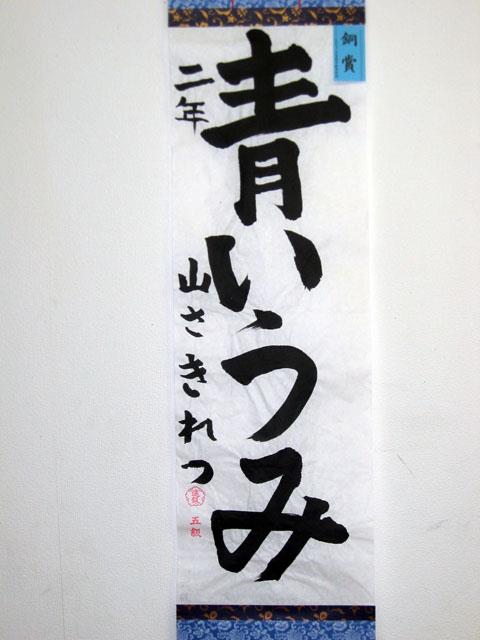 銅賞
青いうみ
二年
山さきれつ
五級